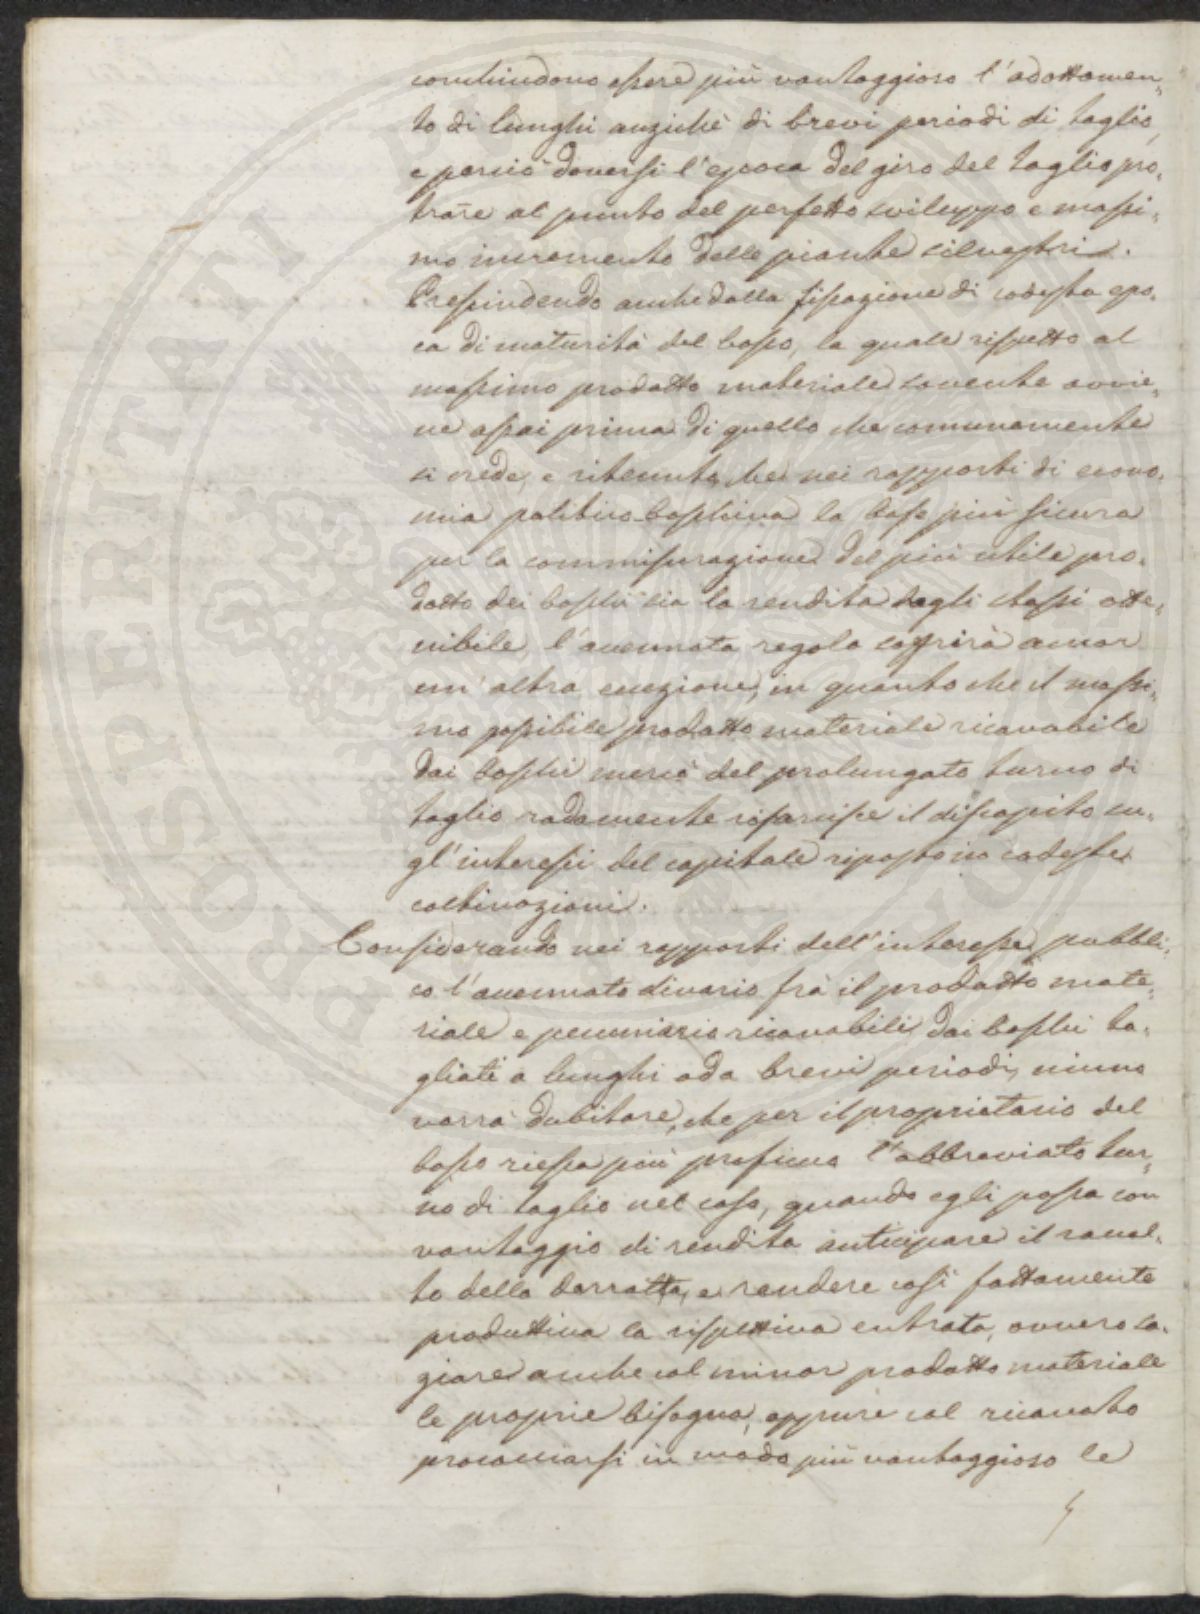 conchiudono essere più vantaggioso l'adottamen„
to di lunghi anzichè di brevi periodi di taglio,
e perciò doversi l'epoca del giro del taglio pro„
trarre al punto del perfetto sviluppo e massi„
mo incremento delle piante silvestri.
Prescindendo anche dalla fissazione di codesta epo„
ca di maturità del bosco, la quale rispetto al
massimo prodotto materiale sovente avvie„
ne assai prima di quello che comunemente
si crede, e ritenuto, che nei rapporti di econo„
mia politico-boschiva la base più sicura
per la commisurazione del più utile pro„
dotto dei boschi sia la rendita dagli stessi otte„
nibile, l'accennata regola soffrirà ancor
un'altra eccezione, in quanto che il massi„
mo possibile prodotto materiale ricavabile
dai boschi mercè del prolungato turno di
taglio radamente risarcisce il discapito su„
gl'interessi del capitale riposto in codeste
coltivazioni.
Considerando nei rapporti dell'interesse pubbli„
co l'accennato divario frà il prodotto mate„
riale e pecuniario ricavabili dai boschi ta„
gliati a lunghi od a brevi periodi, niuno
vorrà dubitare, che per il proprietario del
bosco riesca più proficuo l'abbreviato tur„
no di taglio nel caso, quando egli possa con
vantaggio di rendita anticipare il racol„
to della derratta, e rendere così fattamente
produttiva la rispettiva entrata, ovvero sa„
giare anche col minor prodotto materiale
le proprie bisogna, oppure col ricavato
procacciarsi in modo più vantaggioso le
PROSPERITATI PUBLICAE